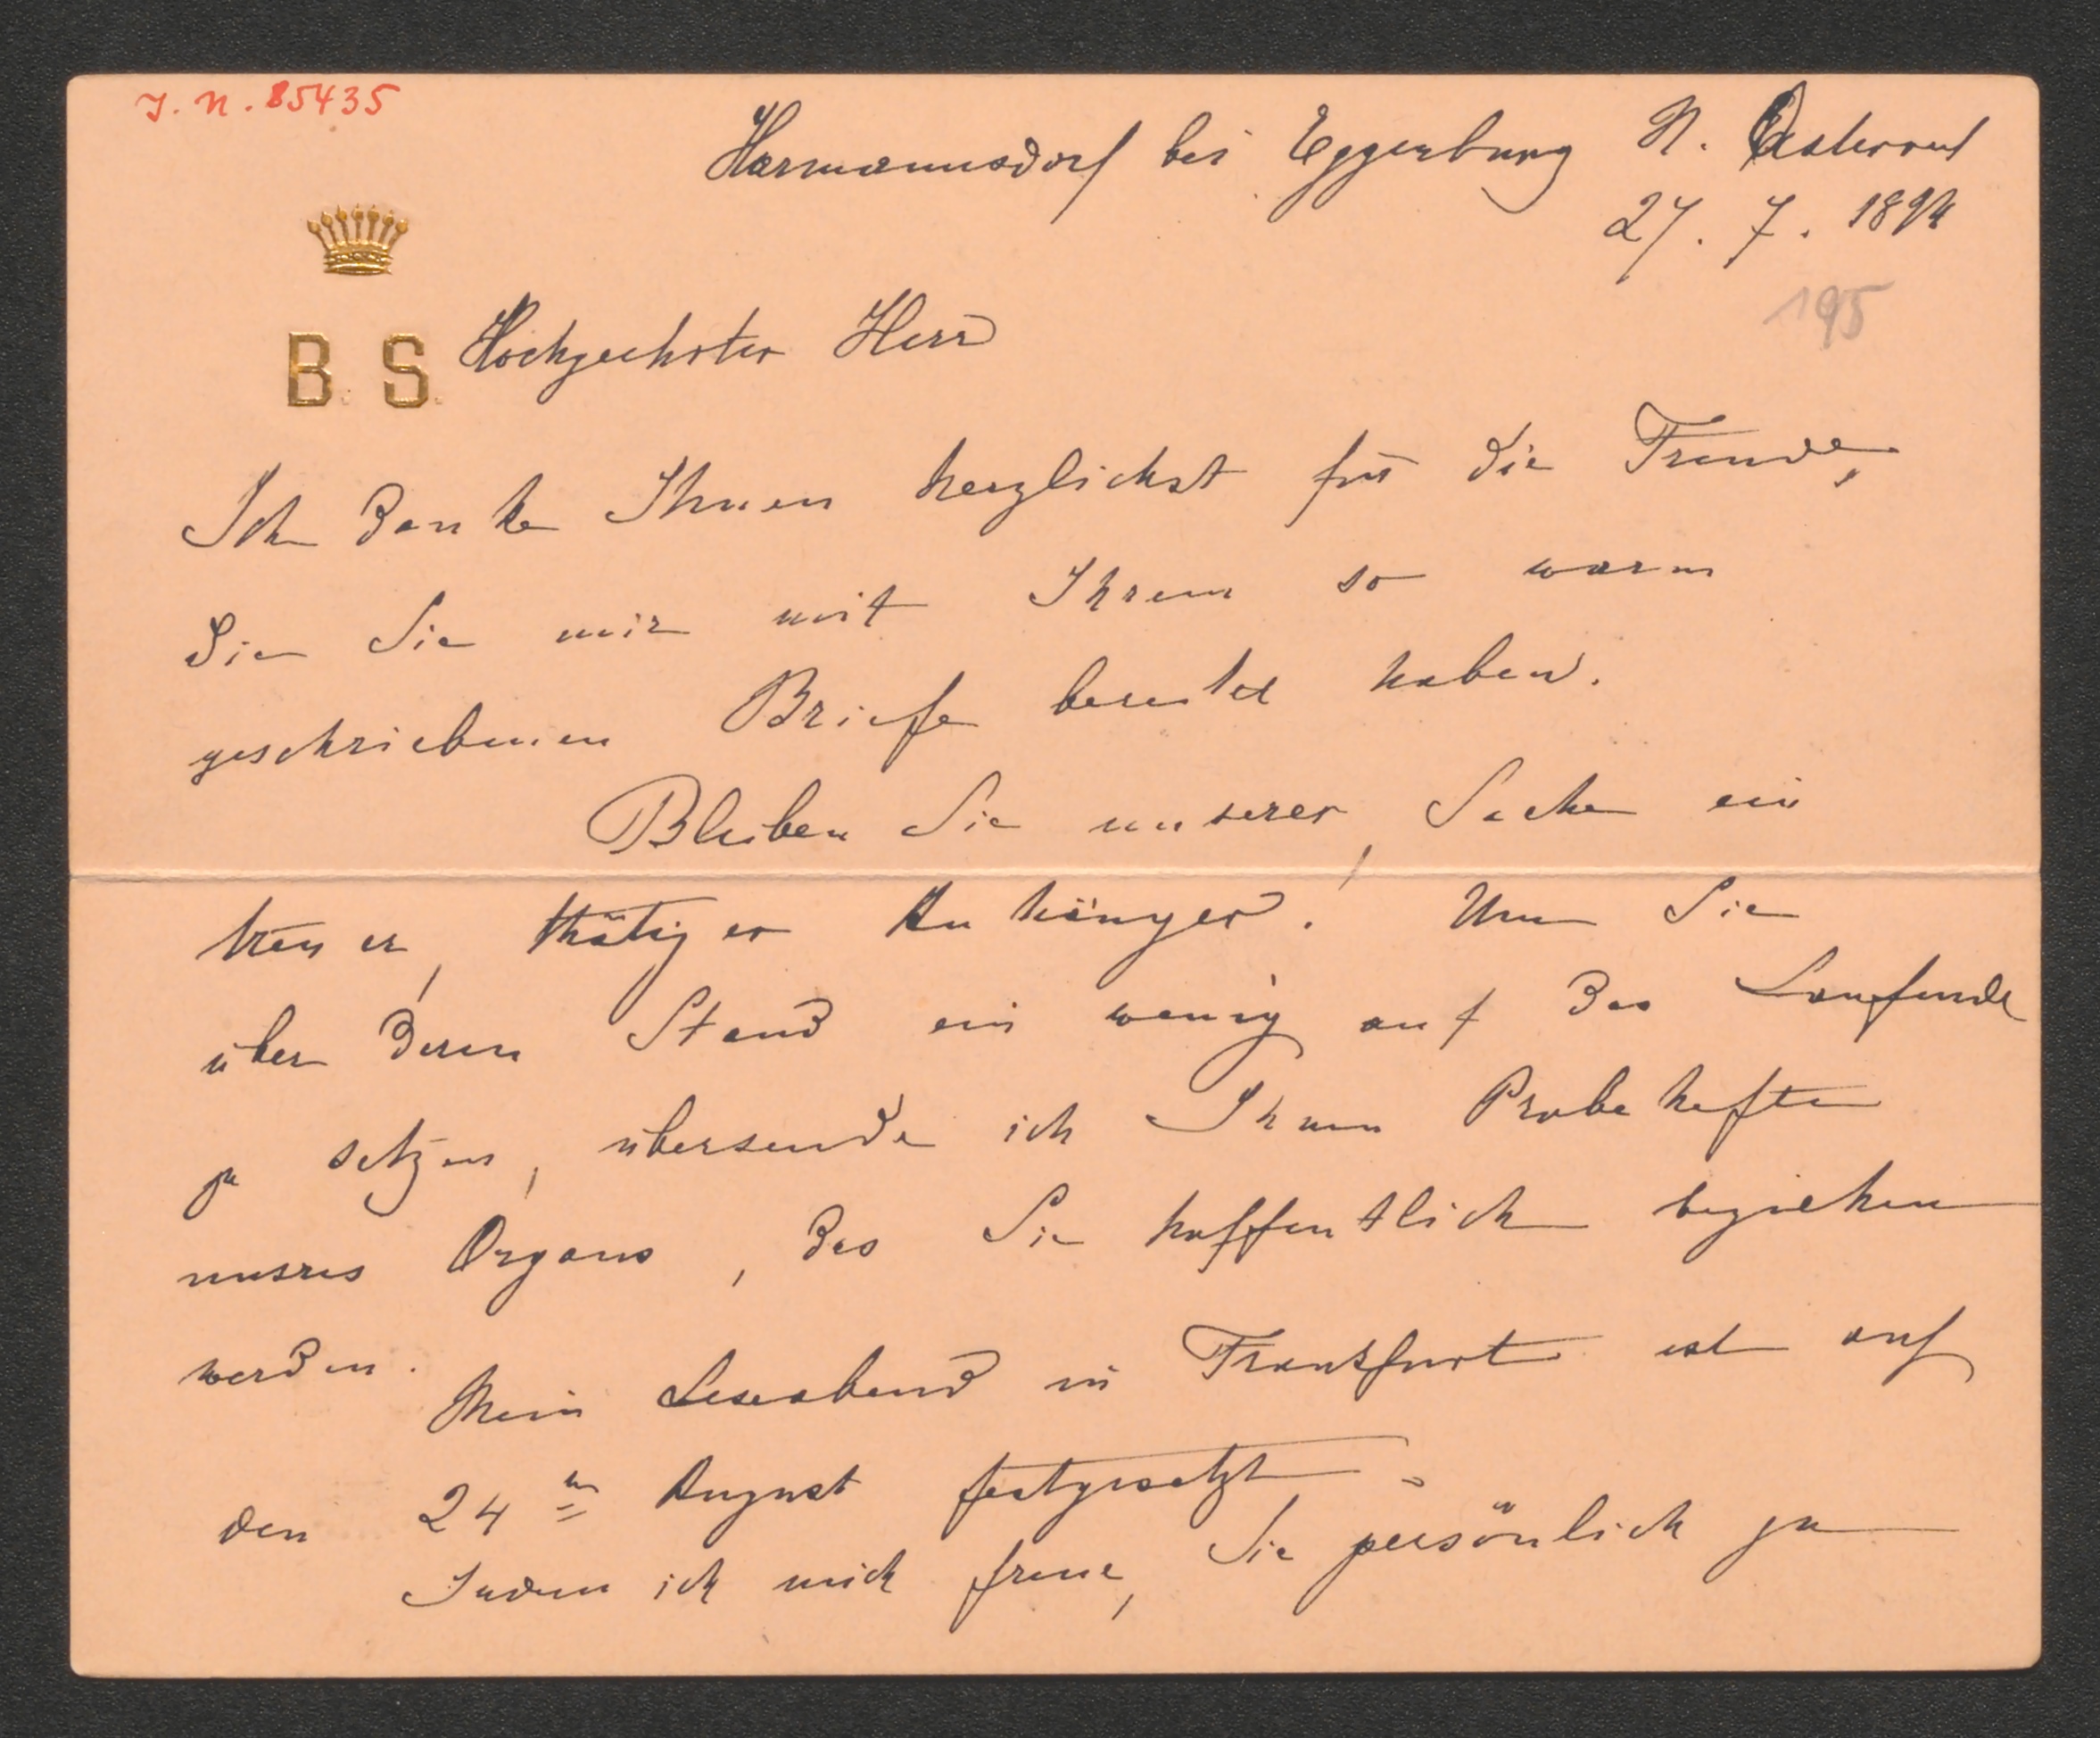 J. N. 85435
Harmannsdorf bei Eggenburg N. Oesterreich
27. 7. 1894
195
B. S.
Hochgeehrter Herr
Ich danke Ihnen herzlichst für die Freude,
die Sie mir mit Ihrem so warm
geschriebenen Briefe bereitet haben.
Bleiben Sie unserer Sache ein
treuer, thätiger Anhänger! Um Sie
über deren Stand ein wenig auf das Laufende
zu setzen, übersende ich Ihnen Probehefte
unsres Organs, das Sie hoffentlich beziehen
werden.
Mein Leseabend in Frankfurt ist auf
den 24ten August festgesetzt.
Indem ich mich freue, Sie persönlich zu